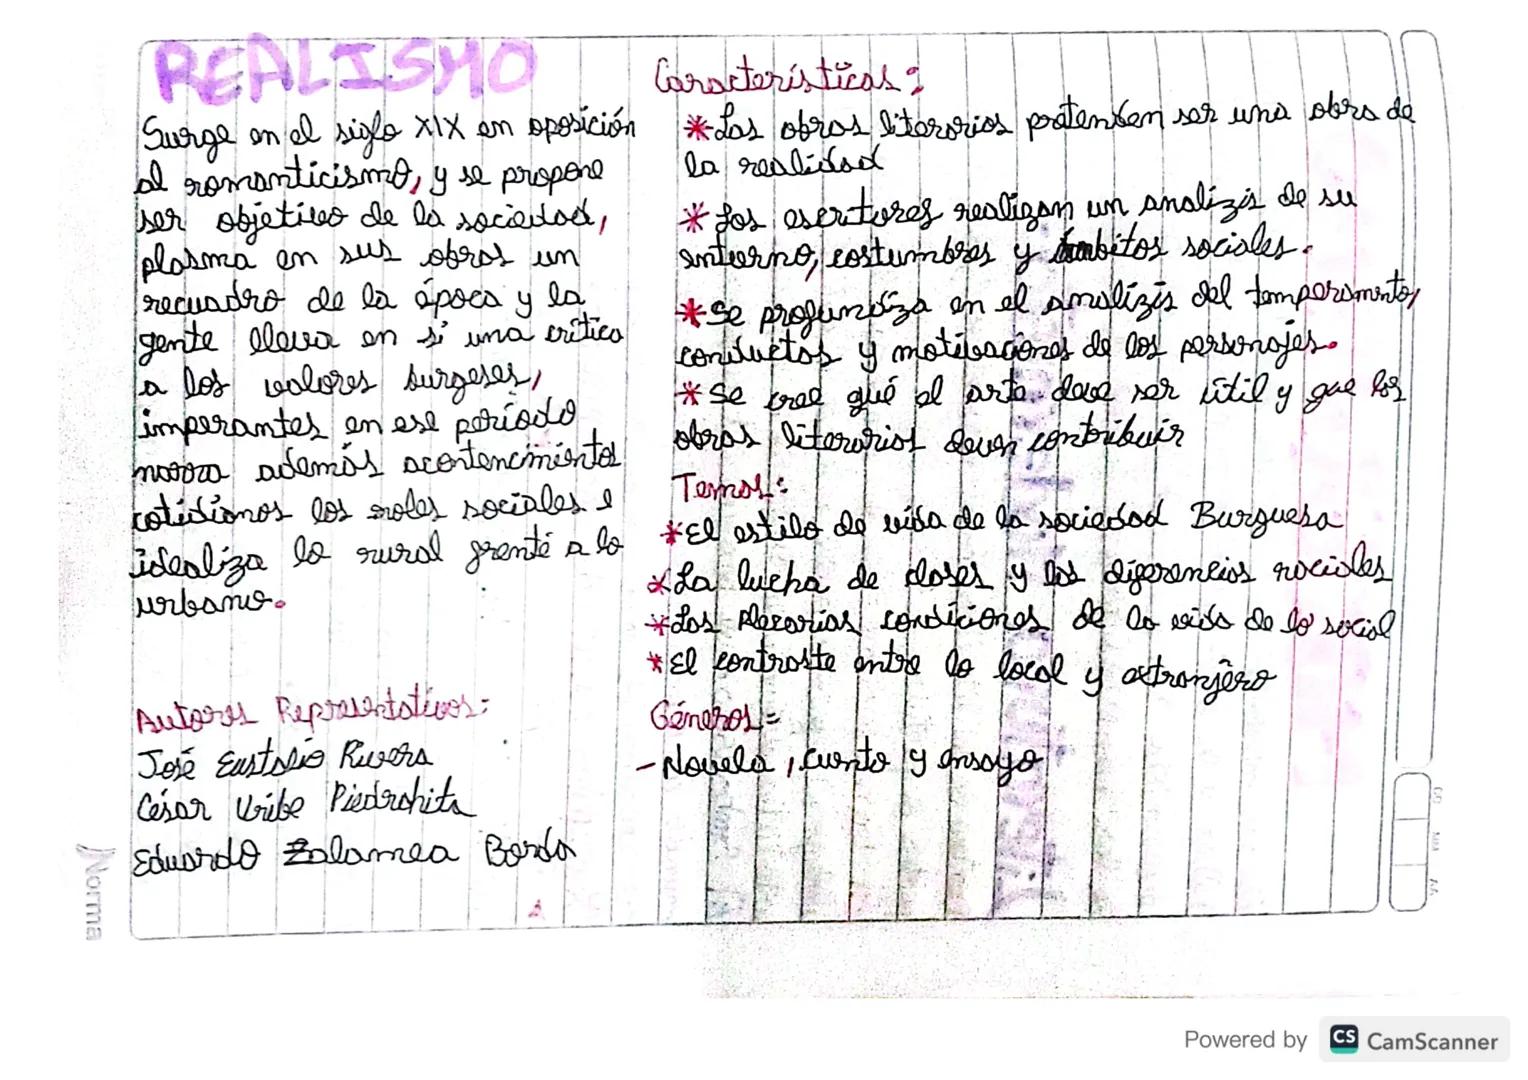 REALISMO
Surge en el siglo XIX en oposición
al romanticismo, y se propone
ser objetivo de la sociedad,
plasma en sus obras un
recuadro de la época y la
gente lleva en si una crítica
a los valores burgeses,
imperantes en ese período
narra además acontencimientos
cotidianos los roles sociales e
idealiza lo rural frente a lo
urbano.
Autores Representativos:
José Eustasio Rivera
César Uribe Piedrahita
Eduardo Zalamea Borda
Características:
* Las obras literarias pretenden ser una obra de
la realidad
* Los escritores realizan un analizis de su
entorno, costumbres y ámbitos sociales.
* Se profundiza en el analizis del temperamento,
conductas y motivaciones de los personajes.
* Se cree qué el arte deve ser útil y que las
obras literarias deven contribuir
Temas:
* El estilo de vida de la sociedad Burguesa
* La lucha de clases y las diferencias sociales
* Las precarias condiciones de la vida de lo social
* El contraste entre lo local y extranjero
Géneros=
- Novela, cuento y ensayo
Norma
Powered by CS CamScanner